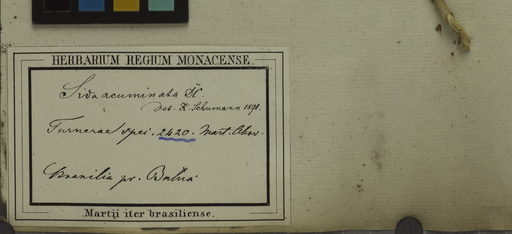 HERBARIUM REGIUM MONACENSE.
Sida acuminata
det. K. Schumann 1891.
Turnerae spec. 2420. Mart. Obs.
Brasilia pr. Bahia
Martii iter brasiliense.